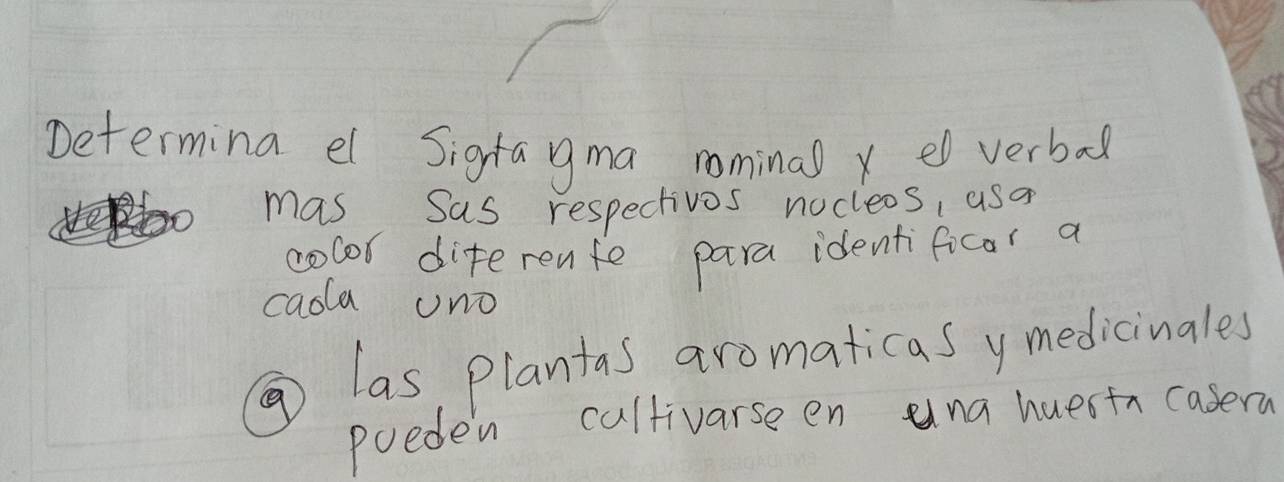 Determina el Sigtagma nominal y el verbal
mas sus respectivos nucleos, usa
color diferente para identificar a
cada uno
a las plantas aromaticas y medicinales
pueden cultivarse en una huerta casera